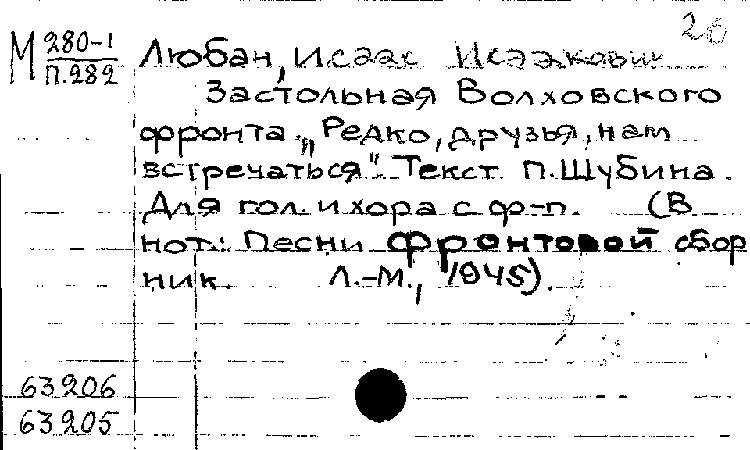 20
М 280-1 Любан, Исаак Исаакович
П.282 Застольная Волховского
фронта „Редко, друзья, нам
встречаться". Текст П. Шубина.
Для гол. и хора с ф-п. (В
нот.: Песни фронтовой сбор
ник. Л.-М., 1945).
63206
63205